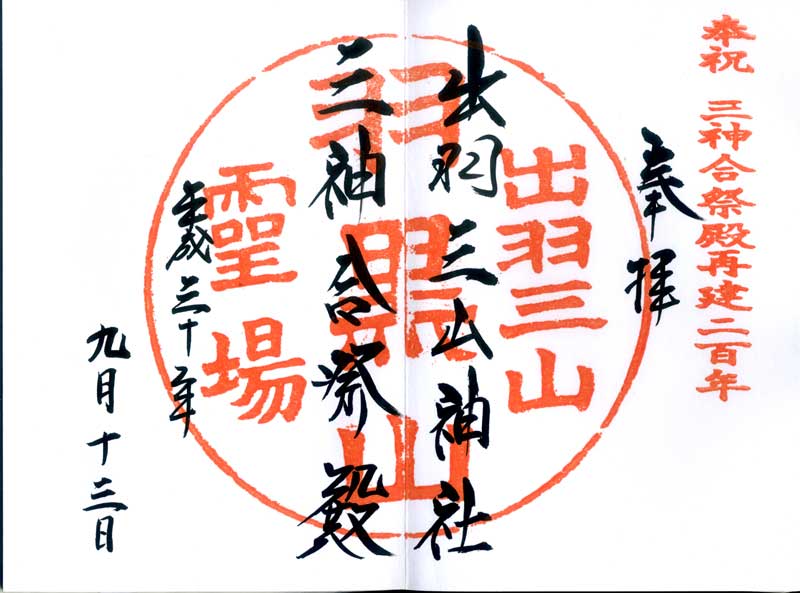 奉祝 三神合祭殿再建二百年
奉拝
出羽三山神社
三神合祭殿
平成三十年
九月十三日
出羽三山
羽黒山
霊場